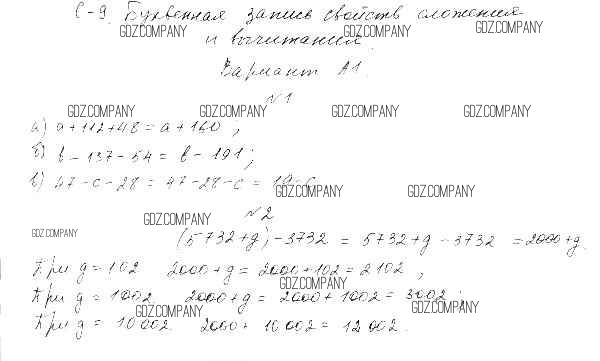 С-9. Буквенная запись свойств сложения
GDZ.COMPANY GDZ.COMPANY GDZ.COMPANY
и вычитания.
Вариант А1.
№1
GDZ.COMPANY GDZ.COMPANY GDZ.COMPANY GDZ.COMPANY
а) a+112+48=a+160,
б) b-137-54=b-191;
в) 47-c-28=47-28-c=19-c
GDZ.COMPANY GDZ.COMPANY
№2
GDZ.COMPANY
GDZ.COMPANY
(5732+g)-3732 = 5732+g-3732 =2000+g.
При g=102 2000+g=2000+102=2102,
GDZ.COMPANY
При g=1002 2000+g=2000+1002=3002;
GDZ.COMPANY GDZ.COMPANY
При g=10002 2000+10002=12002.